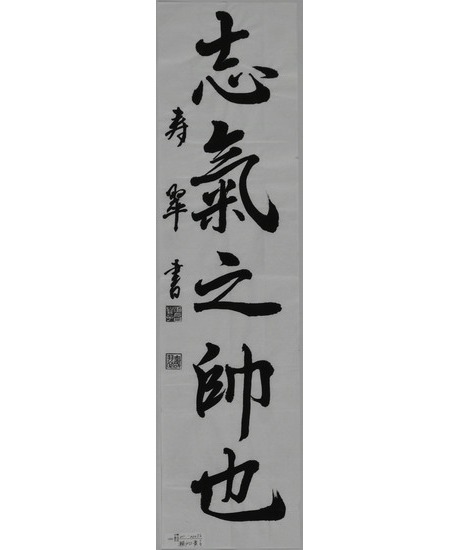 志氣之帥也
寿翠書